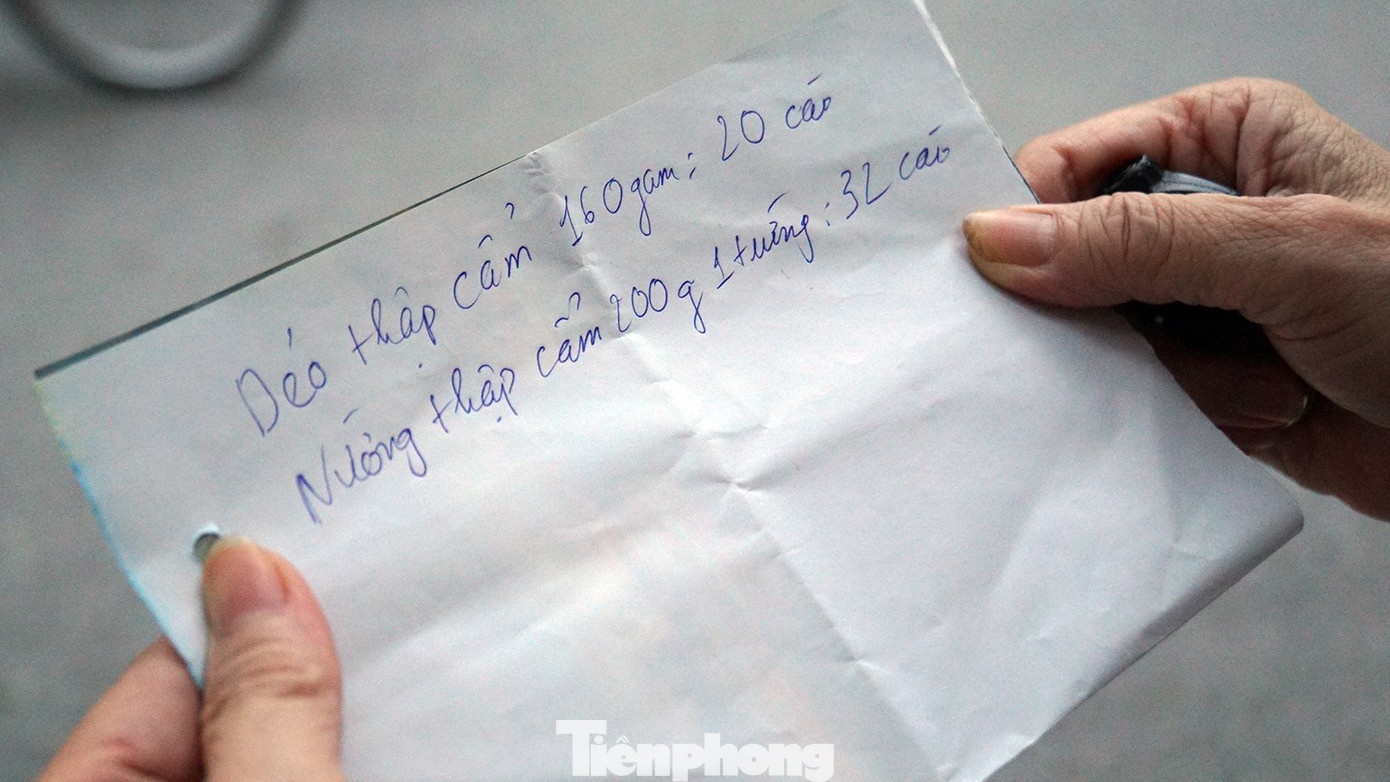 Dẻo thập cẩm 160gam: 20 cái
Nướng thập cẩm 200g 1 trứng: 32 cái
Tiênphong